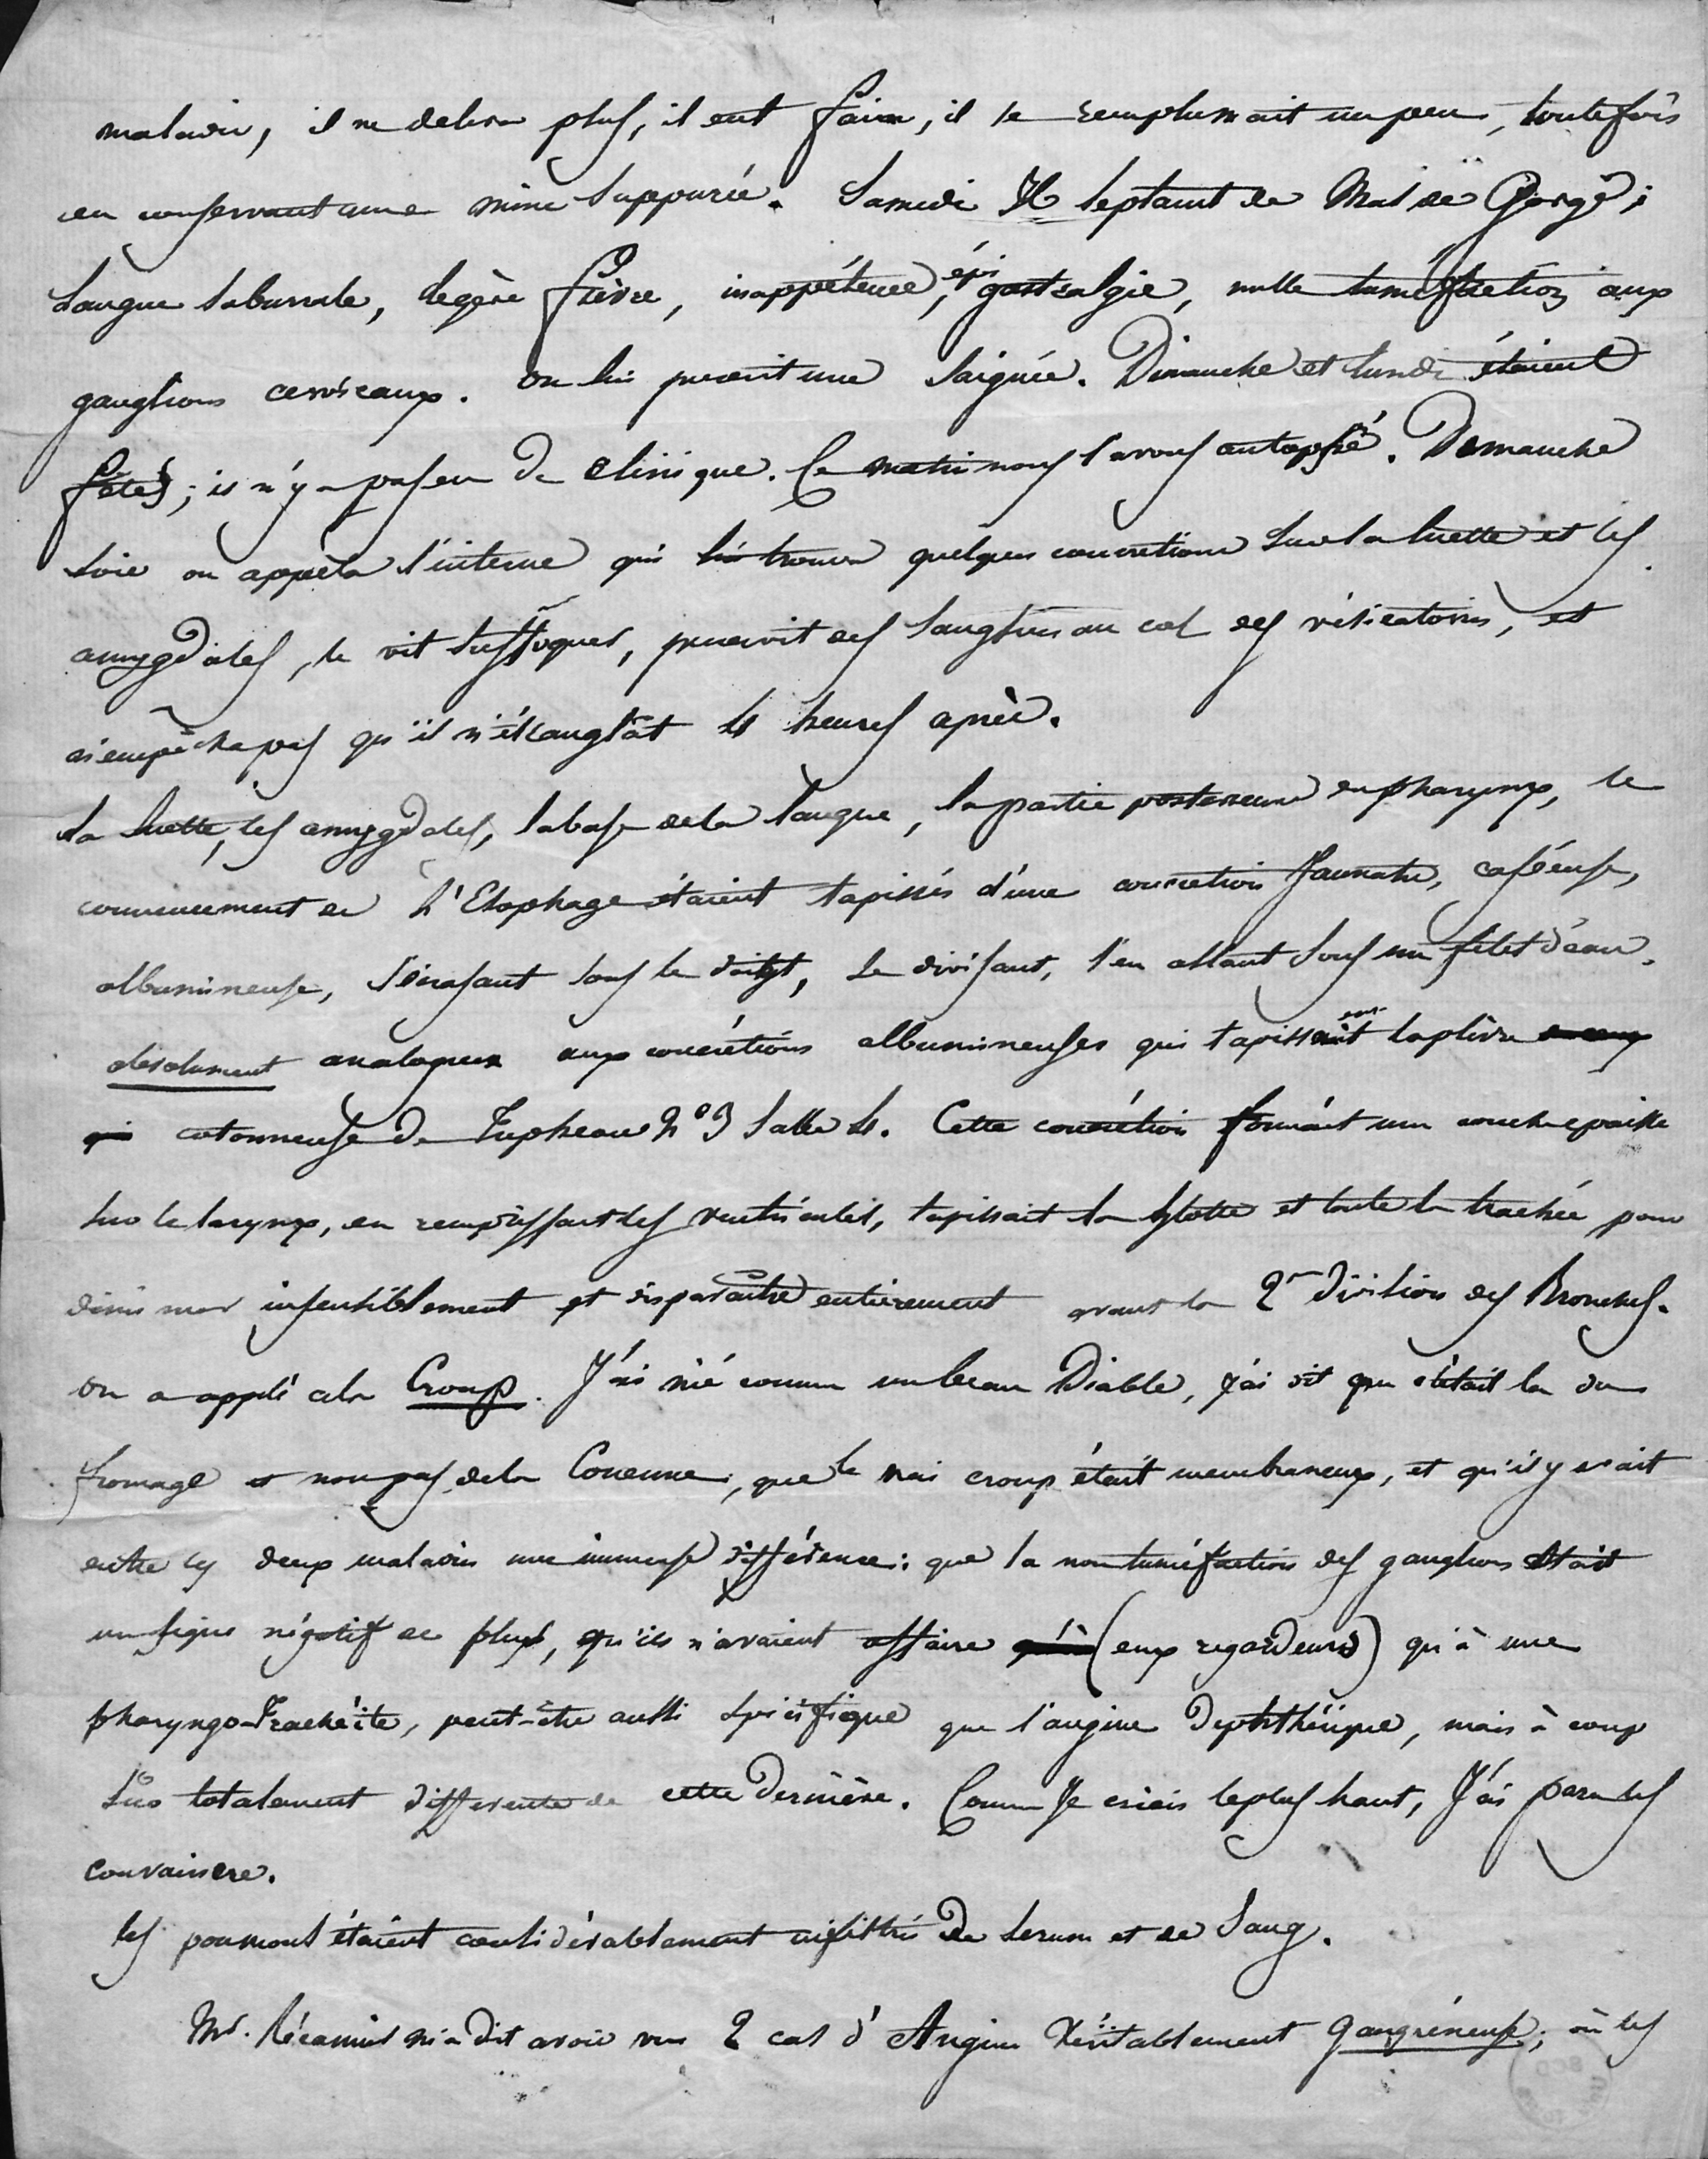 maladie, il ne delira plus, il eut faim, il se remplumait un peu, toutefois
en conservant une mine suppurée. Samedi Il se plaint de Mal de Gorge;
Langue saburrale, legère fièvre, inappétence, épigastralgie, nulle tuméfaction aux
ganglions cervicaux. On lui prescrit une saignée. Dimanche et lundi étaient
fêtes; il n'y a pas eu de clinique. Ce matin nous l'avons autopsié. Dimanche
soir on appela l'interne qui lui trouva quelques concretions sur la luette et les
amygdales, le vit suffoquer, prescrivit des sangsues au col des vésicatoires, et
n'empêcha pas qu'il n'étranglât 4 heures après.
La luette, les amygdales, la base de la langue, la partie posterieure du pharynx, le
commencement de L'Esophage étaient tapissés d'une concretion Jaunatre, caséeuse,
albumineuse, s'écrasant sous le doigt, se divisant, s'en allant sous un filet d'eau,
absolument analogues aux concrétions albumineuses qui tapissaient la plèvre
cotonneuse de N° 3 Salle 4. Cette concrétion formait une couche epaisse
sur le larynx, en remplissant les ventricules, tapissait la glotte et toute la trachée pour
diminuer insensiblement et disparaître entierement avant la 2e Division des Bronches.
On a appelé cela Croup. J'ai nié comme un beau Diable, j'ai dit que c'était là du
fromage et non pas de la Couenne, que le vrai croup était membraneux, et qu'il y avait
entre ces deux maladies une immense différence: que la non tuméfaction des ganglions était
un signe négatif de plus, qu'ils n'avaient affaire (eux regardeurs) qu'à une
pharyngo-Trachéite, peut-être aussi spécifique que l'angine Diphthérique, mais à coup
sûr totalement differente de cette Dernière. Comme Je criais le plus haut, J'ai paru les
convaincre.
les poumons étaient considérablement infiltrés de serum et de Sang.
Mr. Récamier m'a Dit avoir vu 2 cas d'Angine Véritablement gangréneuse; où les